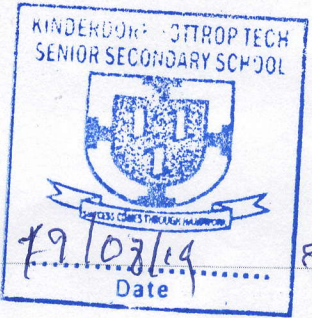 KINDERDORF BOTTROP TECH
SENIOR SECONDARY SCHOOL
SUCCESS COMES THROUGH HARDWORK
19/03/19
Date